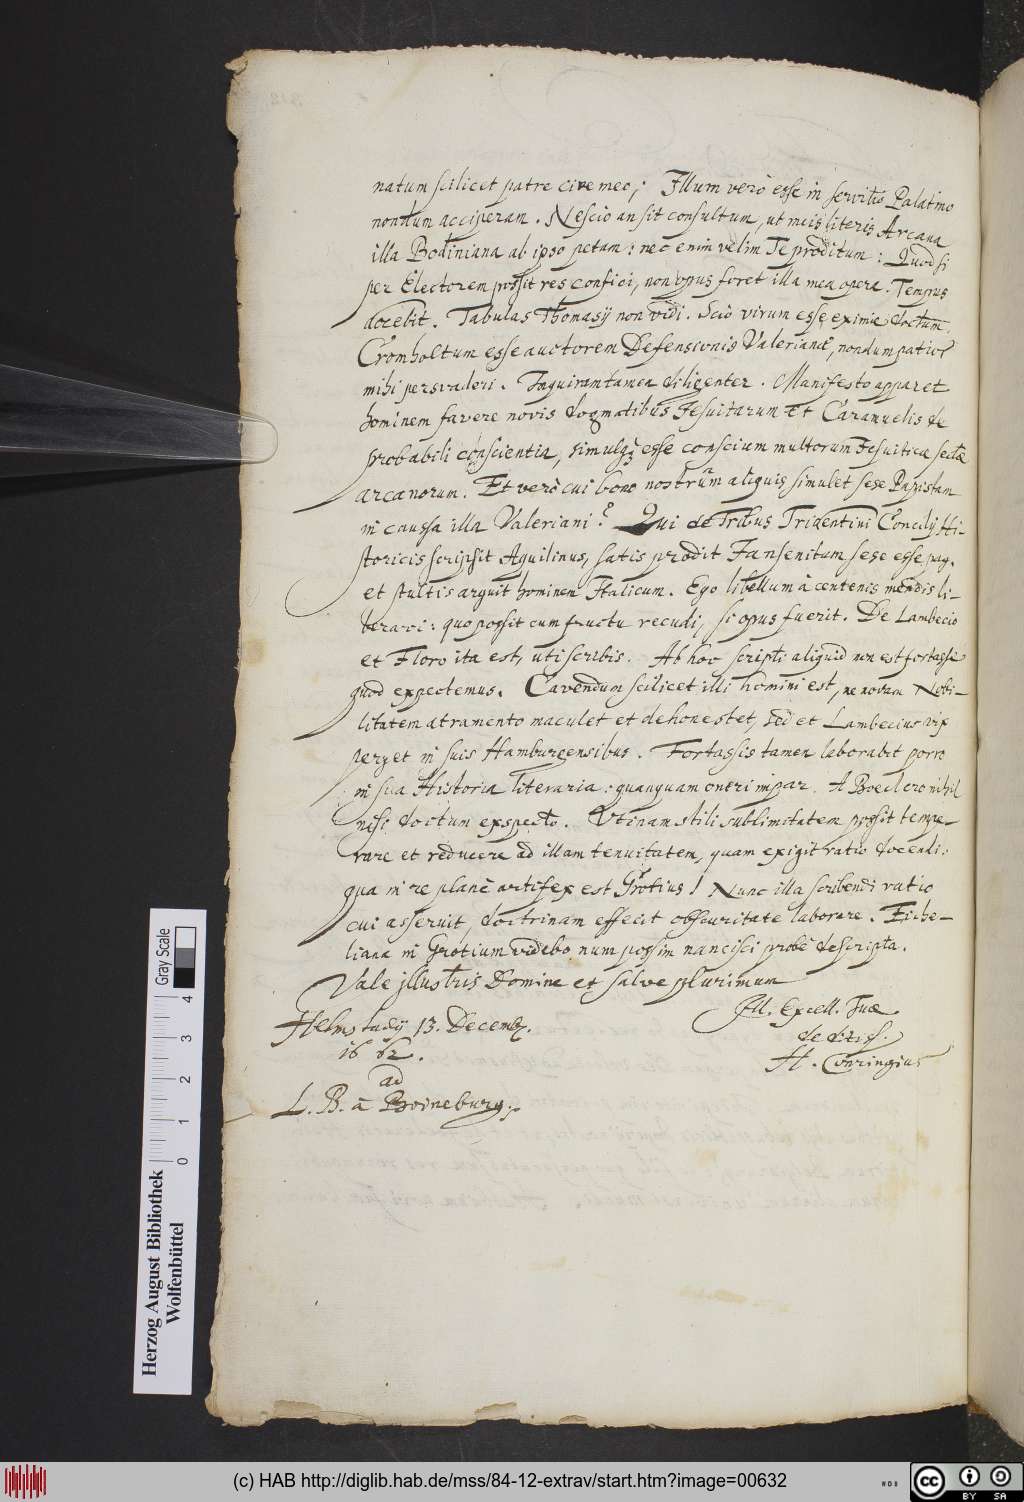 natum scilicet patre cive meo; Illum verò esse in servitio Palatino
nondum acciperam. Nescio an sit consultum, ut meis literis Arcana
illa Bodiniana ab ipso petam: nec enim velim Te proditum: Quod si
per Electorem possit res confici, non opus foret illa mea opera. Tempus
docebit. Tabulas Thomasij non vidi. Scio virum esse eximie doctum.
Cromholtum esse auctorem Defensionis Valerianæ, nondum patior
mihi persvaderi. Inquiram tamen diligenter. Manifesto apparet
hominem favere novis dogmatibus Jesuitarum Et Caramuelis de
probabili conscientia, simulq; esse conscium multorum Jesuiticæ sectæ
arcanorum. Et verò cui bono nostrûm aliquis simulet sese Papistam
in caussa illa Valeriani? Qui de Tribus Tridentini Concilij Hi-
storicis scripsit Aquilinus, satis prodit Jansenitum sese esse
et stultis arguit hominem Italicum. Ego libellum à centenis mendis li-
beravi: quo possit cum fructu recudi, si opus fuerit. De Lambecio
et Floro ita est, uti scribis. Ab hoc scripti aliquid non est fortasse
quod expectemus. Cavendum scilicet illi homini est, ne novam Nobi-
litatem atramento maculet et dehonestet, sed et Lambecius vix
perget in suis Hamburgensibus. Fortassis tamen laborabit porro
in sua Historia literaria: quanquam oneri impar. A Boeclero nihil
nisi doctum exspecto. Utinam stili sublimitatem possit tempe-
rare et reducere ad illam tenuitatem, quam exigit ratio docendi:
qua in re planè artifex est Grotius! Nunc illa scribendi ratio
cui asservit, doctrinam effecit obscuritate laborare. Eiche-
liana in Grotium videbo num possim nancisci probè descripta.
Vale illustris Domine et salve plurimum
Helmstadij 13. Decemb.
1662.
Ill. Excell. Tuæ
deditiss.
H. Conringius
ad
L. B. à Boineburg.
Herzog August Bibliothek
Wolfenbüttel
Gray Scale
0 1 2 3 4
(c) HAB http://diglib.hab.de/mss/84-12-extrav/start.htm?image=00632
cc BY SA